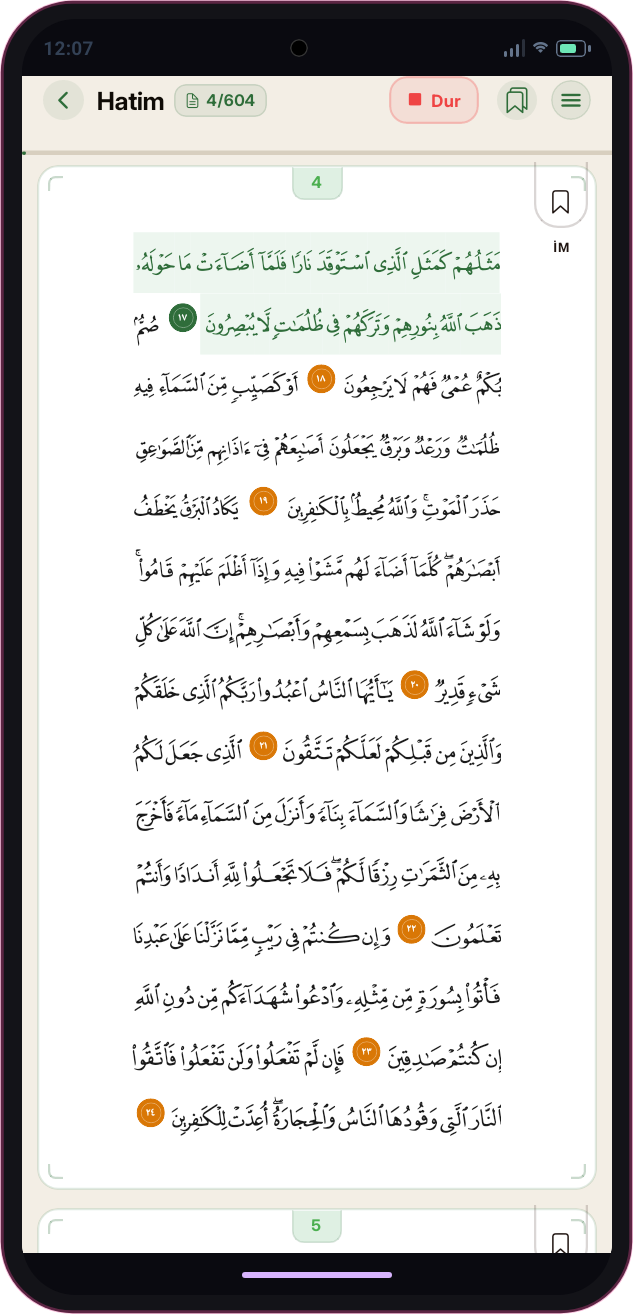 12:07
Hatim
4/604
Dur
4
İM
مَثَلُهُمْ كَمَثَلِ ٱلَّذِى ٱسْتَوْقَدَ نَارًا فَلَمَّآ أَضَآءَتْ مَا حَوْلَهُۥ
ذَهَبَ ٱللَّهُ بِنُورِهِمْ وَتَرَكَهُمْ فِى ظُلُمَٰتٍ لَّا يُبْصِرُونَ ١٧ صُمٌّۢ
بُكْمٌ عُمْىٌ فَهُمْ لَا يَرْجِعُونَ ١٨ أَوْ كَصَيِّبٍ مِّنَ ٱلسَّمَآءِ فِيهِ
ظُلُمَٰتٌ وَرَعْدٌ وَبَرْقٌ يَجْعَلُونَ أَصَٰبِعَهُمْ فِىٓ ءَاذَانِهِم مِّنَ ٱلصَّوَٰعِقِ
حَذَرَ ٱلْمَوْتِ ۚ وَٱللَّهُ مُحِيطٌۢ بِٱلْكَٰفِرِينَ ١٩ يَكَادُ ٱلْبَرْقُ يَخْطَفُ
أَبْصَٰرَهُمْ ۖ كُلَّمَآ أَضَآءَ لَهُم مَّشَوْا۟ فِيهِ وَإِذَآ أَظْلَمَ عَلَيْهِمْ قَامُوا۟ ۚ
وَلَوْ شَآءَ ٱللَّهُ لَذَهَبَ بِسَمْعِهِمْ وَأَبْصَٰرِهِمْ ۚ إِنَّ ٱللَّهَ عَلَىٰ كُلِّ
شَىْءٍ قَدِيرٌ ٢٠ يَٰٓأَيُّهَا ٱلنَّاسُ ٱعْبُدُوا۟ رَبَّكُمُ ٱلَّذِى خَلَقَكُمْ
وَٱلَّذِينَ مِن قَبْلِكُمْ لَعَلَّكُمْ تَتَّقُونَ ٢١ ٱلَّذِى جَعَلَ لَكُمُ
ٱلْأَرْضَ فِرَٰشًا وَٱلسَّمَآءَ بِنَآءً وَأَنزَلَ مِنَ ٱلسَّمَآءِ مَآءً فَأَخْرَجَ
بِهِۦ مِنَ ٱلثَّمَرَٰتِ رِزْقًا لَّكُمْ ۖ فَلَا تَجْعَلُوا۟ لِلَّهِ أَندَادًا وَأَنتُمْ
تَعْلَمُونَ ٢٢ وَإِن كُنتُمْ فِى رَيْبٍ مِّمَّا نَزَّلْنَا عَلَىٰ عَبْدِنَا
فَأْتُوا۟ بِسُورَةٍ مِّن مِّثْلِهِۦ وَٱدْعُوا۟ شُهَدَآءَكُم مِّن دُونِ ٱللَّهِ
إِن كُنتُمْ صَٰدِقِينَ ٢٣ فَإِن لَّمْ تَفْعَلُوا۟ وَلَن تَفْعَلُوا۟ فَٱتَّقُوا۟
ٱلنَّارَ ٱلَّتِى وَقُودُهَا ٱلنَّاسُ وَٱلْحِجَارَةُ ۖ أُعِدَّتْ لِلْكَٰفِرِينَ ٢٤
5